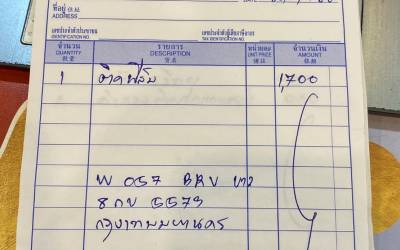 ที่อยู่
ADDRESS
เลขประจำตัวประชาชน
IDENTIFICATION NO.
เลขประจำตัวผู้เสียภาษีอากร
TAX IDENTIFICATION NO.
จำนวน รายการ หน่วยละ จำนวนเงิน
QUANTITY DESCRIPTION UNIT PRICE AMOUNT
1 ติดฟิล์ม 1,700
W 057 BRV
8 กข 5579
กรุงเทพมหานคร